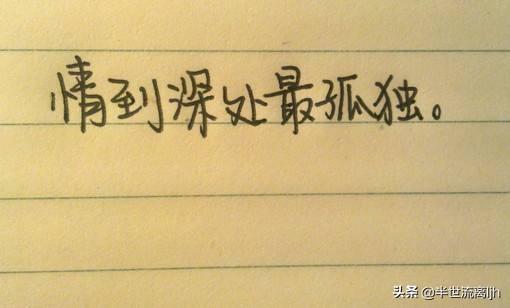 情到深处最孤独。
头条 @半世流离ljh